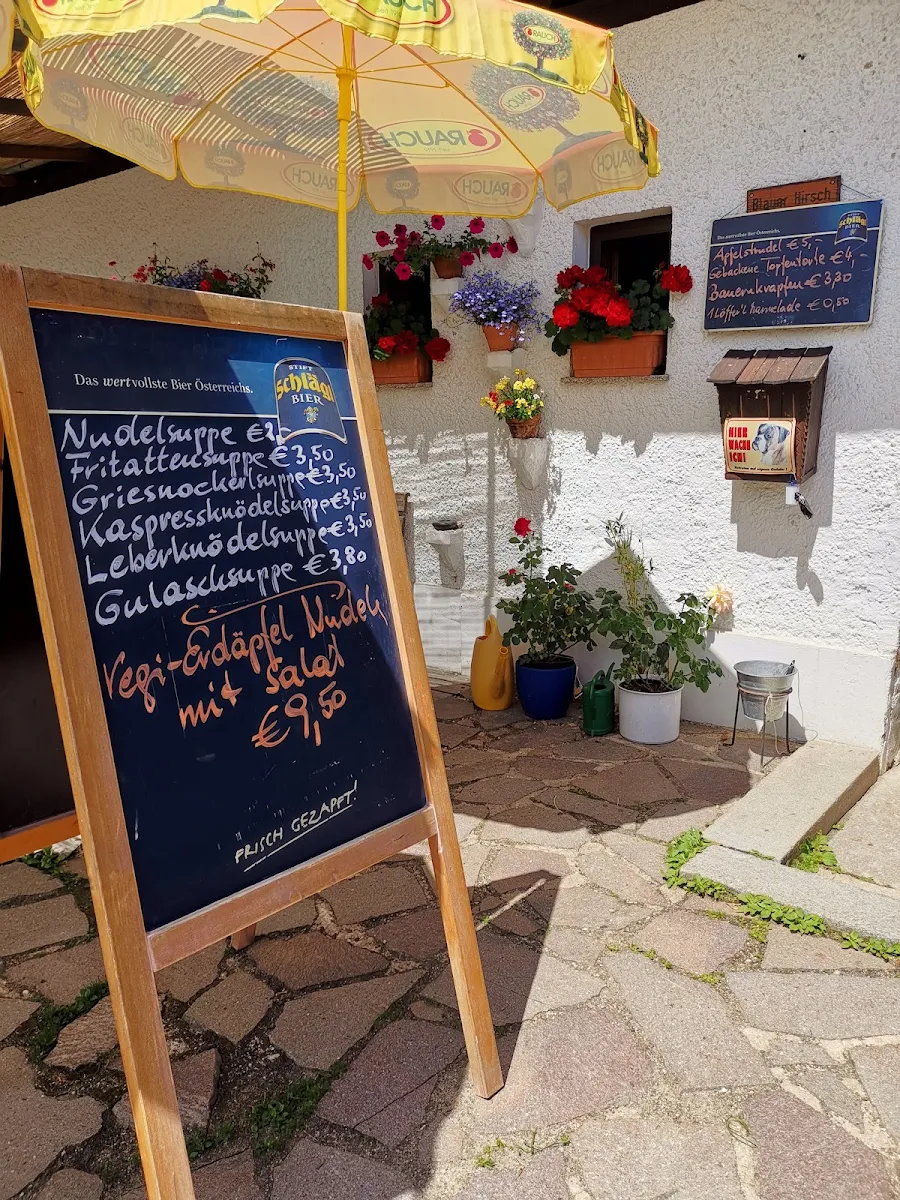 RAUCH
RAUCH
RAUCH
RAUCH
RAUCH
RAUCH
Blauer Hirsch
Das wertvollste Bier Österreichs.
Schlägl
BIER
Apfelstrudel € 5,-
Gebackene Topfentorte € 4,-
Bauernkrapfen € 3,30
1 Löffer'l Marmelade € 0,50
HIER
WACHE
ICH!
Das wertvollste Bier Österreichs.
STIFT
Schlägl
BIER
Nudelsuppe
Fritattensuppe € 3,50
Griesnockerlsuppe € 3,50
Kaspressknödelsuppe € 3,50
Leberknödelsuppe € 3,50
Gulaschsuppe € 3,80
Vegi-Erdäpfel Nudeln
mit Salat
€ 9,50
FRISCH GEZAPFT!